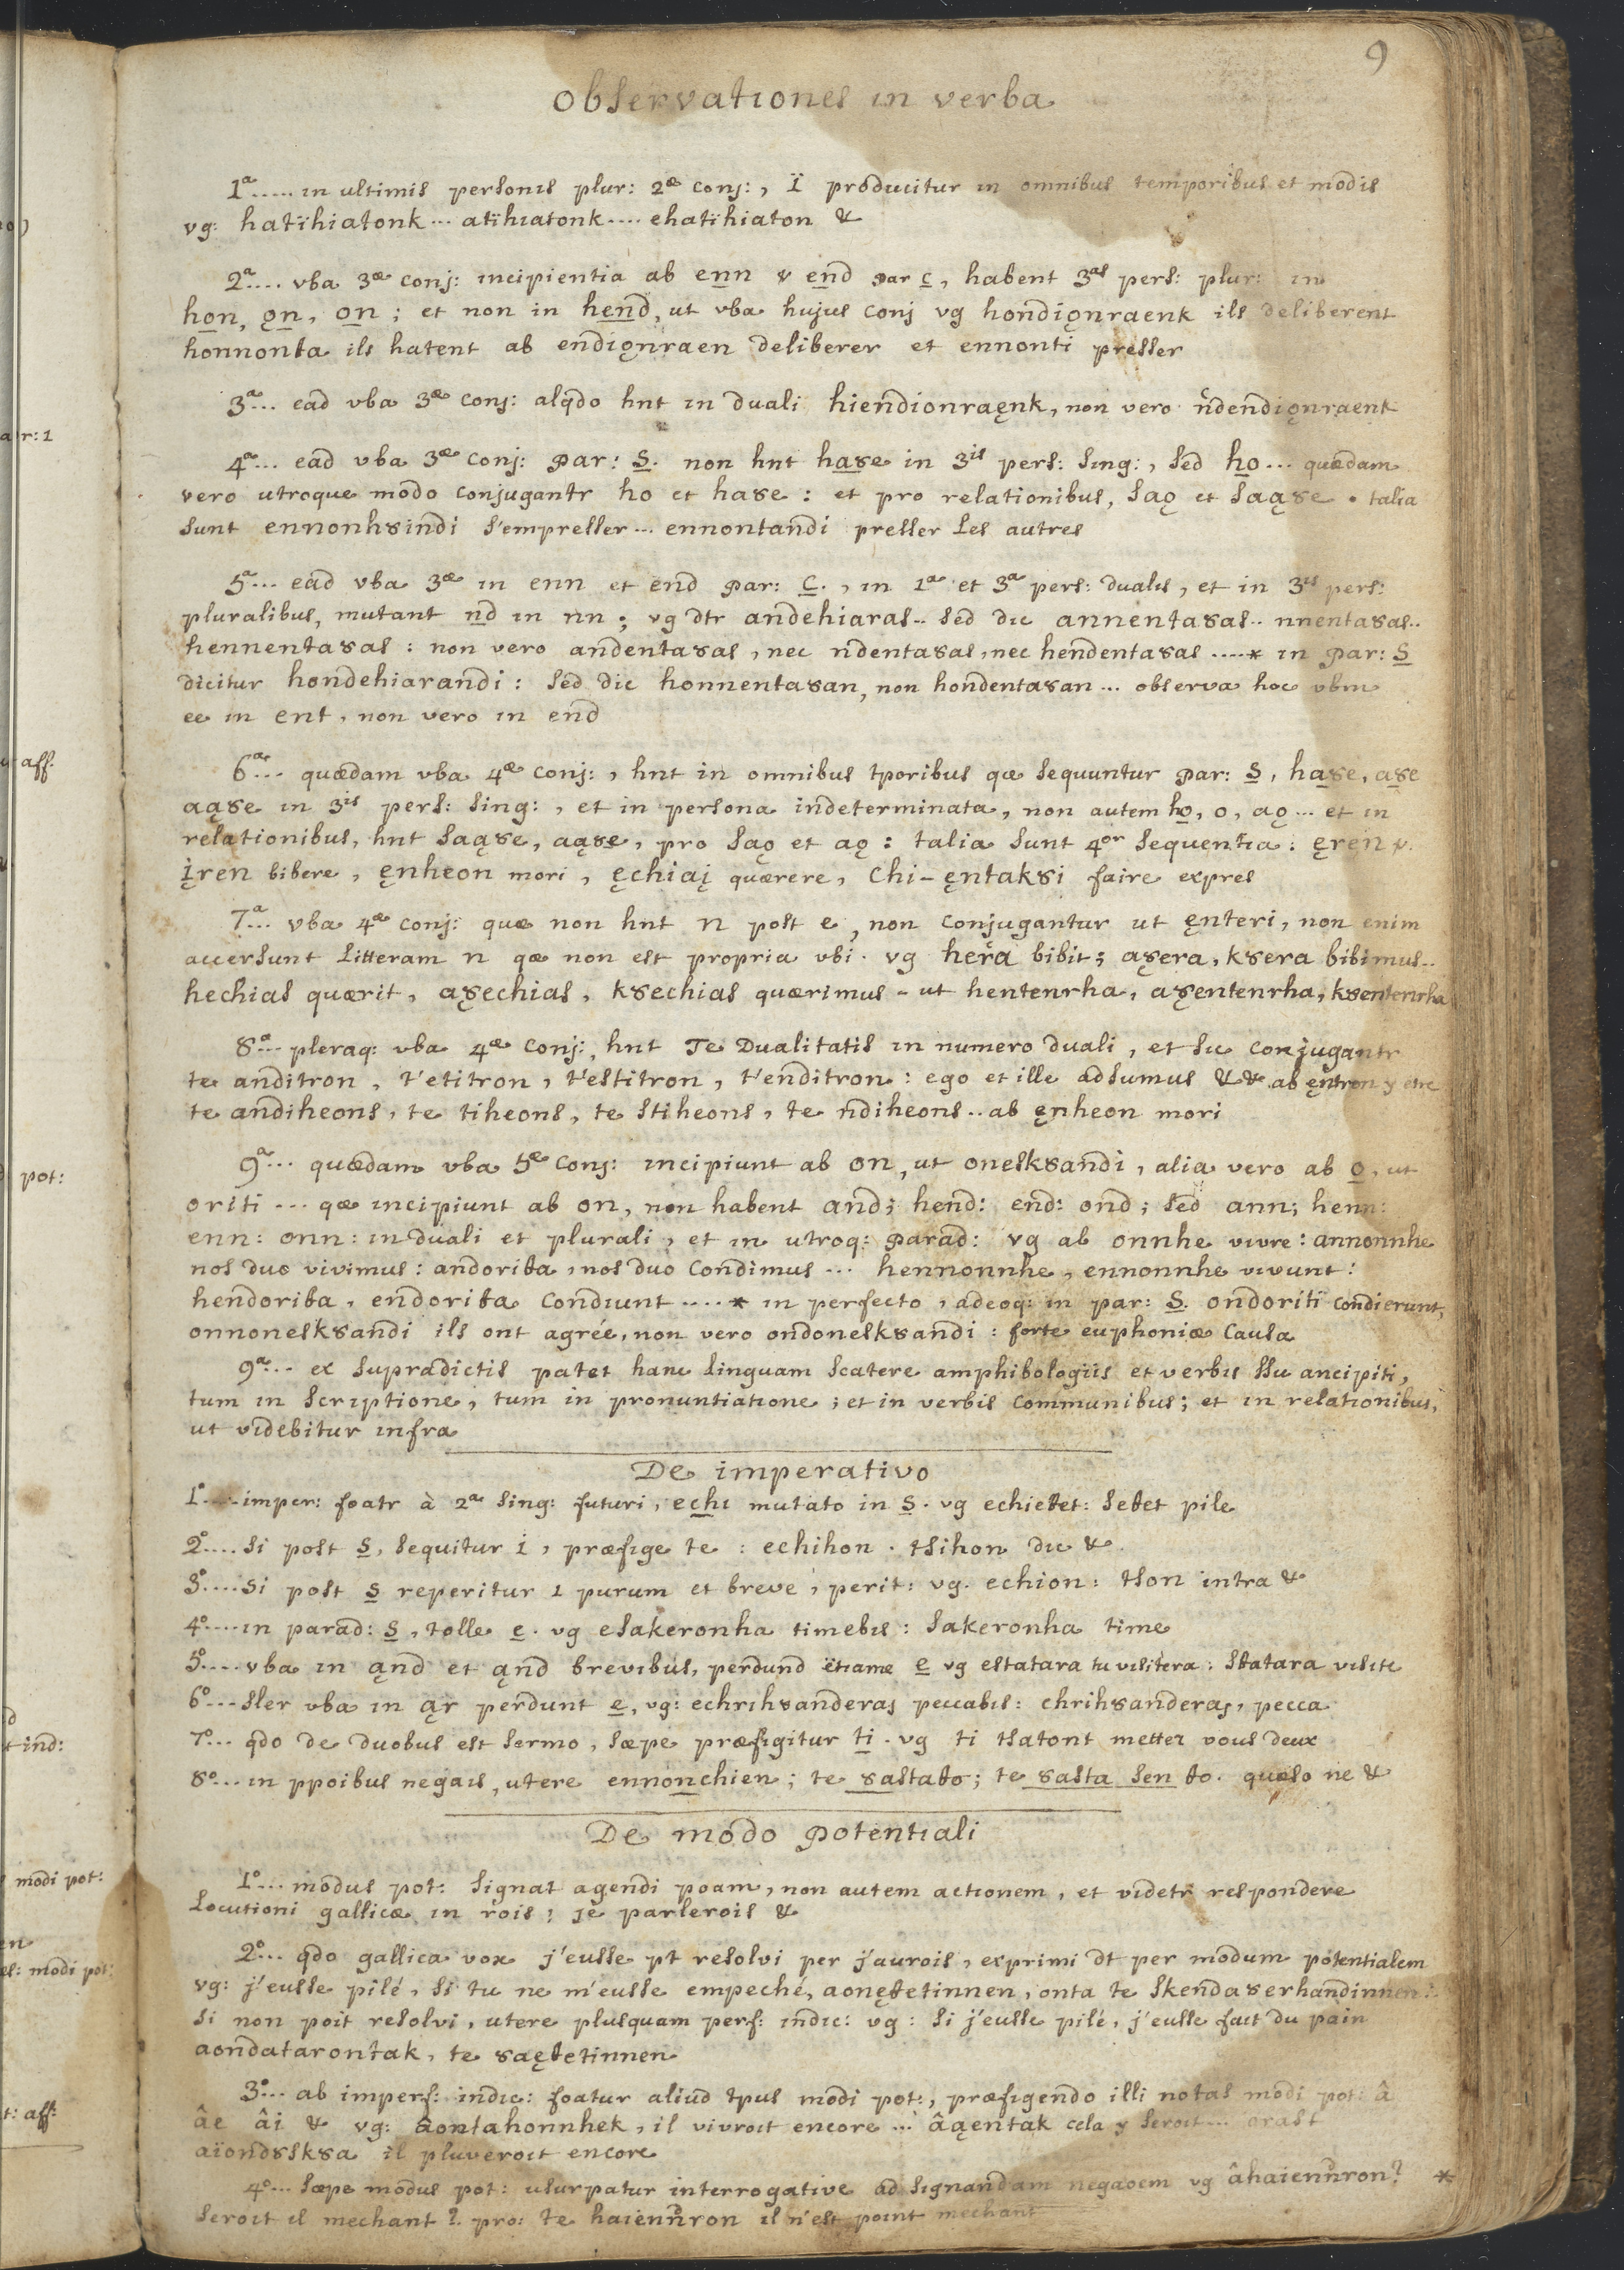 9
observationes in verba
1ª..... in ultimis personis plur: 2æ conj:, ï producitur in omnibus temporibus et modis
vg: hatïhiatonk... atïhiatonk.... ehatïhiaton &
2ª.... vba 3æ conj: incipientia ab enn & end par c, habent 3as pers: plur: in
hon, ǫn, on; et non in hend, ut vba hujus conj vg hondiǫnraenk ils deliberent
honnonta ils hatent ab endiǫnraen deliberer et ennonti presser
3ª... ead vba 3æ conj: alqdo hnt in duali hiendionraęnk, non vero ndendiǫnraenk
4ª... ead vba 3æ conj: par: S. non hnt ha8e in 3is pers: sing:, sed ho... quædam
vero utroque modo conjugantr ho et ha8e: et pro relationibus, saǫ et saą8e. talia
sunt ennonh8indi s'empresser... ennontandi presser les autres
5ª... ead vba 3æ in enn et end par: C., in 1ª et 3ª pers: dualis, et in 3is pers:
pluralibus, mutant nd in nn; vg dtr andehiaras.. sed dic annenta8as.. nnenta8as..
hennenta8as: non vero andenta8as, nec ndenta8as, nec hendenta8as ....* in par: S
dicitur hondehiarandi: sed dic honnenta8an, non hondenta8an... observa hoc vbm
ee in ent, non vero in end
6ª... quædam vba 4æ conj:, hnt in omnibus tporibus quæ sequuntur par: S, ha8e, a8e
aą8e in 3is pers: sing:, et in persona indeterminata, non autem ho, o, aǫ... et in
relationibus, hnt saą8e, aą8e, pro saǫ et aǫ: talia sunt 4or sequentia: ęren v.
įren bibere, ęnheon mori, ęchiaį quærere, chi-ęntak8i faire expres
7ª... vba 4æ conj: quæ non hnt n post e, non conjugantur ut ęnteri, non enim
accersunt litteram n quæ non est propria vbi. vg hera bibit; a8era, k8era bibimus..
hechias quærit, a8echias, k8echias quærimus - ut hentenrha, a8entenrha, k8entenrha
8ª... pleraq: vba 4æ conj:, hnt Te Dualitatis in numero duali, et sic conjugantr
te anditron, t'etitron, t'estitron, t'enditron: ego et ille adsumus && ab ęntron y etre
te andiheons, te tiheons, te stiheons, te ndiheons.. ab ęnheon mori
9ª... quædam vba 5æ conj: incipiunt ab on, ut onesk8andi, alia vero ab o, ut
oriti... quæ incipiunt ab on, non habent and; hend: end: ond; sed ann; henn:
enn: onn: in duali et plurali, et in utroq: parad: vg ab onnhe vivre: annonnhe
nos duo vivimus: andorita, nos duo condimus... hennonnhe, ennonnhe vivunt:
hendorita, endorita condiunt ....* in perfecto, adeoq: in par: S. ondoriti condierunt,
onnonesk8andi ils ont agrée, non vero ondonesk8andi: forte euphoniæ causa
9ª... ex supradictis patet hanc linguam scatere amphibologiis et verbis ssu ancipiti,
tum in scriptione, tum in pronuntiatione; et in verbis communibus; et in relationibus,
ut videbitur infra
De imperativo
1°.... imper: foatr à 2ª sing: futuri, echi mutato in S. vg echietet: setet pile
2°.... si post S, sequitur i, præfige te: echihon. tsihon dic &
3°.... si post S reperitur i purum et breve, perit: vg. echion: tson intra &
4°.... in parad: S, tolle e. vg esakeronha timebis: sakeronha time
5°.... vba in ąnd et ąnd brevibus, perdund etiame e vg estatara tu visitera: statara visite
6°... sler vba in ąr perdunt e, vg: echrih8anderaį peccabis: chrih8anderaį, pecca
7°... qdo de duobus est sermo, sæpe præfigitur ti. vg ti tsatont mettez vous deux
8°... in ppoibus negais, utere ennonchien; te 8astato; te 8asta sen to. quæso ne &
De modo Potentiali
1°... modus pot: signat agendi poam, non autem actionem, et videtr respondere
Locutioni gallicæ in rois; je parlerois &
2°... qdo gallica vox j'eusse pt resolvi per j'aurois, exprimi dt per modum potentialem
vg: j'eusse pilé, si tu ne m'eusse empeché, aonętetinnen, onta te skenda8erhandinnen:
si non poit resolvi, utere plusquam perf: indic: vg: si j'eusse pilé, j'eusse fait du pain
aondatarontak, te 8aętetinnen
3°... ab imperf: indic: foatur aliud tpus modi pot:, præfigendo illi notas modi pot: â
âe âi & vg: âontahonnhek, il vivroit encore... âąentak cela y seroit... orast
aïond8sk8a il pluveroit encore
4°... sæpe modus pot: usurpatur interrogative ad signandam negaoem vg âhaienn̂ron? *
seroit il mechant? pro: te haienn̂ron il n'est point mechant